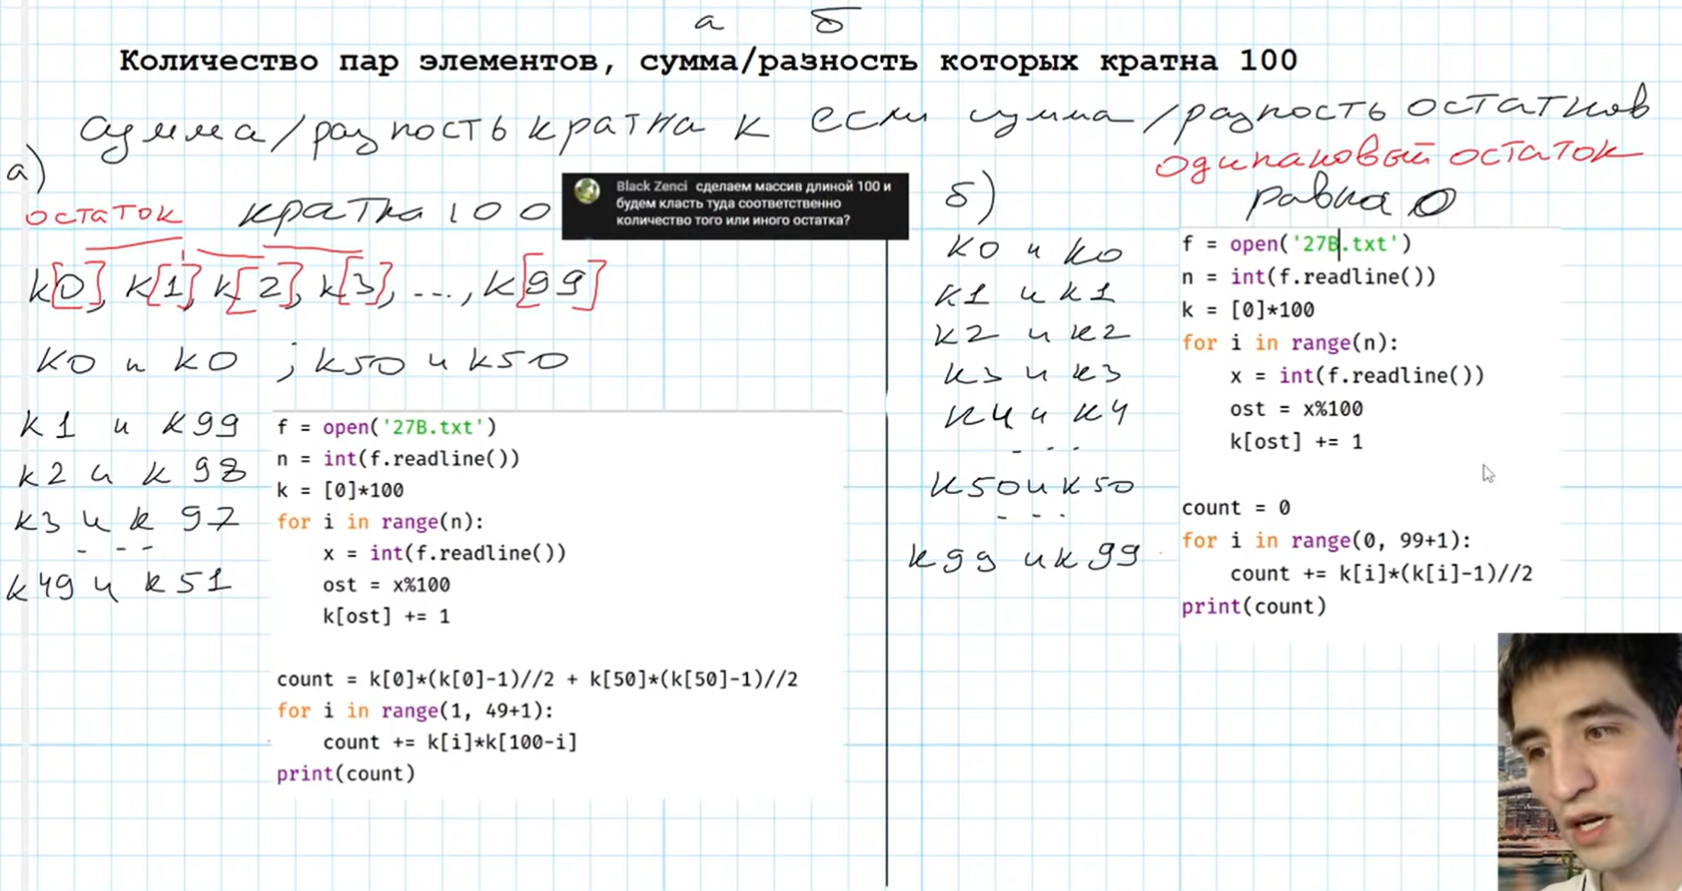 а б
Количество пар элементов, сумма/разность которых кратна 100
сумма/разность кратна к если сумма/разность остатков
одинаковый остаток
равна 0
а)
остаток кратна 100
Black Zenci сделаем массив длиной 100 и
будем класть туда соответственно
количество того или иного остатка?
k[0], k[1], k[2], k[3], ..., k[99]
к0 и к0 ; к50 и к50
к1 и к99
к2 и к98
к3 и к97
- - -
к49 и к51
f = open('27B.txt')
n = int(f.readline())
k = [0]*100
for i in range(n):
    x = int(f.readline())
    ost = x%100
    k[ost] += 1
count = k[0]*(k[0]-1)//2 + k[50]*(k[50]-1)//2
for i in range(1, 49+1):
    count += k[i]*k[100-i]
print(count)
б)
к0 и к0
к1 и к1
к2 и к2
к3 и к3
к4 и к4
- - -
к50 и к50
- - -
к99 и к99
f = open('27B.txt')
n = int(f.readline())
k = [0]*100
for i in range(n):
    x = int(f.readline())
    ost = x%100
    k[ost] += 1
count = 0
for i in range(0, 99+1):
    count += k[i]*(k[i]-1)//2
print(count)